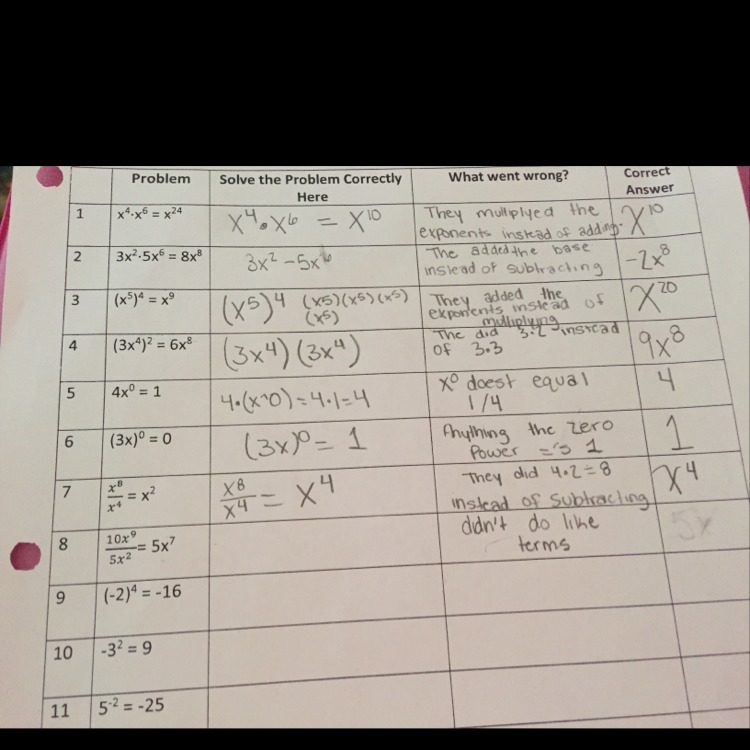 Problem Solve the Problem Correctly Here What went wrong? Correct Answer
1 x⁴·x⁶ = x²⁴ x⁴·x⁶ = x¹⁰ They mulliplyed the exponents instead of adding. x¹⁰
2 3x²·5x⁶ = 8x⁸ 3x² - 5x⁶ The added the base instead of subtracting -2x⁸
3 (x⁵)⁴ = x⁹ (x⁵)⁴ (x5)(x⁵)(x⁵)(x⁵) They added the exponents instead of multiplying x²⁰
4 (3x⁴)² = 6x⁸ (3x⁴)(3x⁴) The did 3·2 instead of 3.3 9x⁸
5 4x⁰ = 1 4·(x^0)=4·1=4 x⁰ doest equal 1/4 4
6 (3x)⁰ = 0 (3x)⁰ = 1 Anything the zero Power ='s 1 1
7 x⁸/x⁴ = x² x⁸/x⁴ = x⁴ They did 4·2=8 instead of subtracting x⁴
8 10x⁹/5x² = 5x⁷ didn't do like terms 5x
9 (-2)⁴ = -16
10 -3² = 9
11 5⁻² = -25